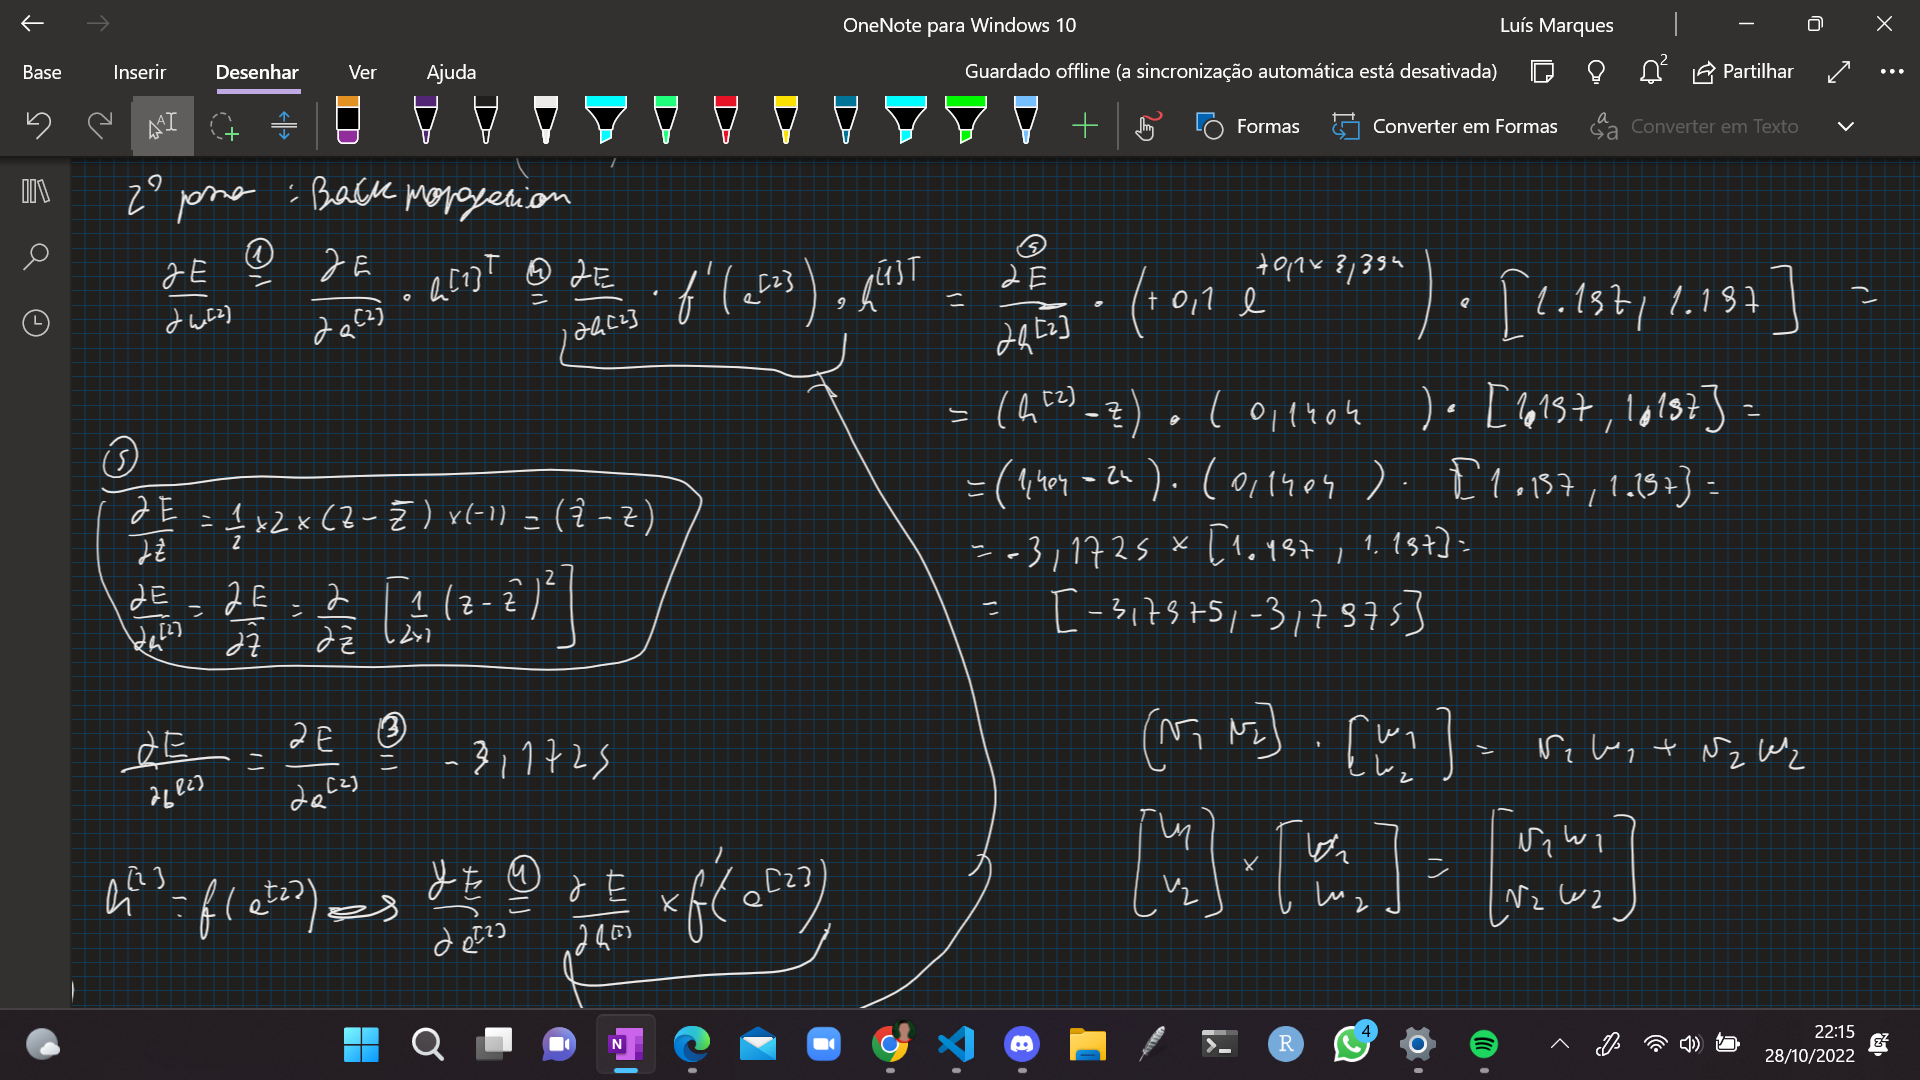 OneNote para Windows 10
Luís Marques
Base Inserir Desenhar Ver Ajuda
Guardado offline (a sincronização automática está desativada)
2
Partilhar
Formas
Converter em Formas
Converter em Texto
2º passo : Backpropagation
∂E/∂w^[2] =① ∂E/∂a^[2] · h^[1]T =④ ∂E/∂h^[2] · f'(a^[2]) · h^[1]T = ⑤ ∂E/∂h^[2] · (+0,1 e^+0,1×3,394) · [1.197, 1.197] =
= (h^[2] - z) · (0,1404) · [1.197, 1.197] =
= (1,404 - 24) · (0,1404) · [1.197, 1.197] =
= -3,1725 × [1.197, 1.197] =
= [-3,7975, -3,7975]
⑤
∂E/∂ẑ = 1/2 × 2 × (z - ẑ) × (-1) = (ẑ - z)
∂E/∂h^[2] = ∂E/∂ẑ = ∂/∂ẑ [1/2×1 (z - ẑ)^2]
∂E/∂b^[2] = ∂E/∂a^[2] =③ -3,1725
[v1 v2] · [w1 w2] = v1 w1 + v2 w2
[v1 v2] × [w1 w2] = [v1 w1 v2 w2]
h^[2] = f(a^[2]) → ∂E/∂a^[2] =④ ∂E/∂h^[2] × f'(a^[2])
4
22:15
28/10/2022